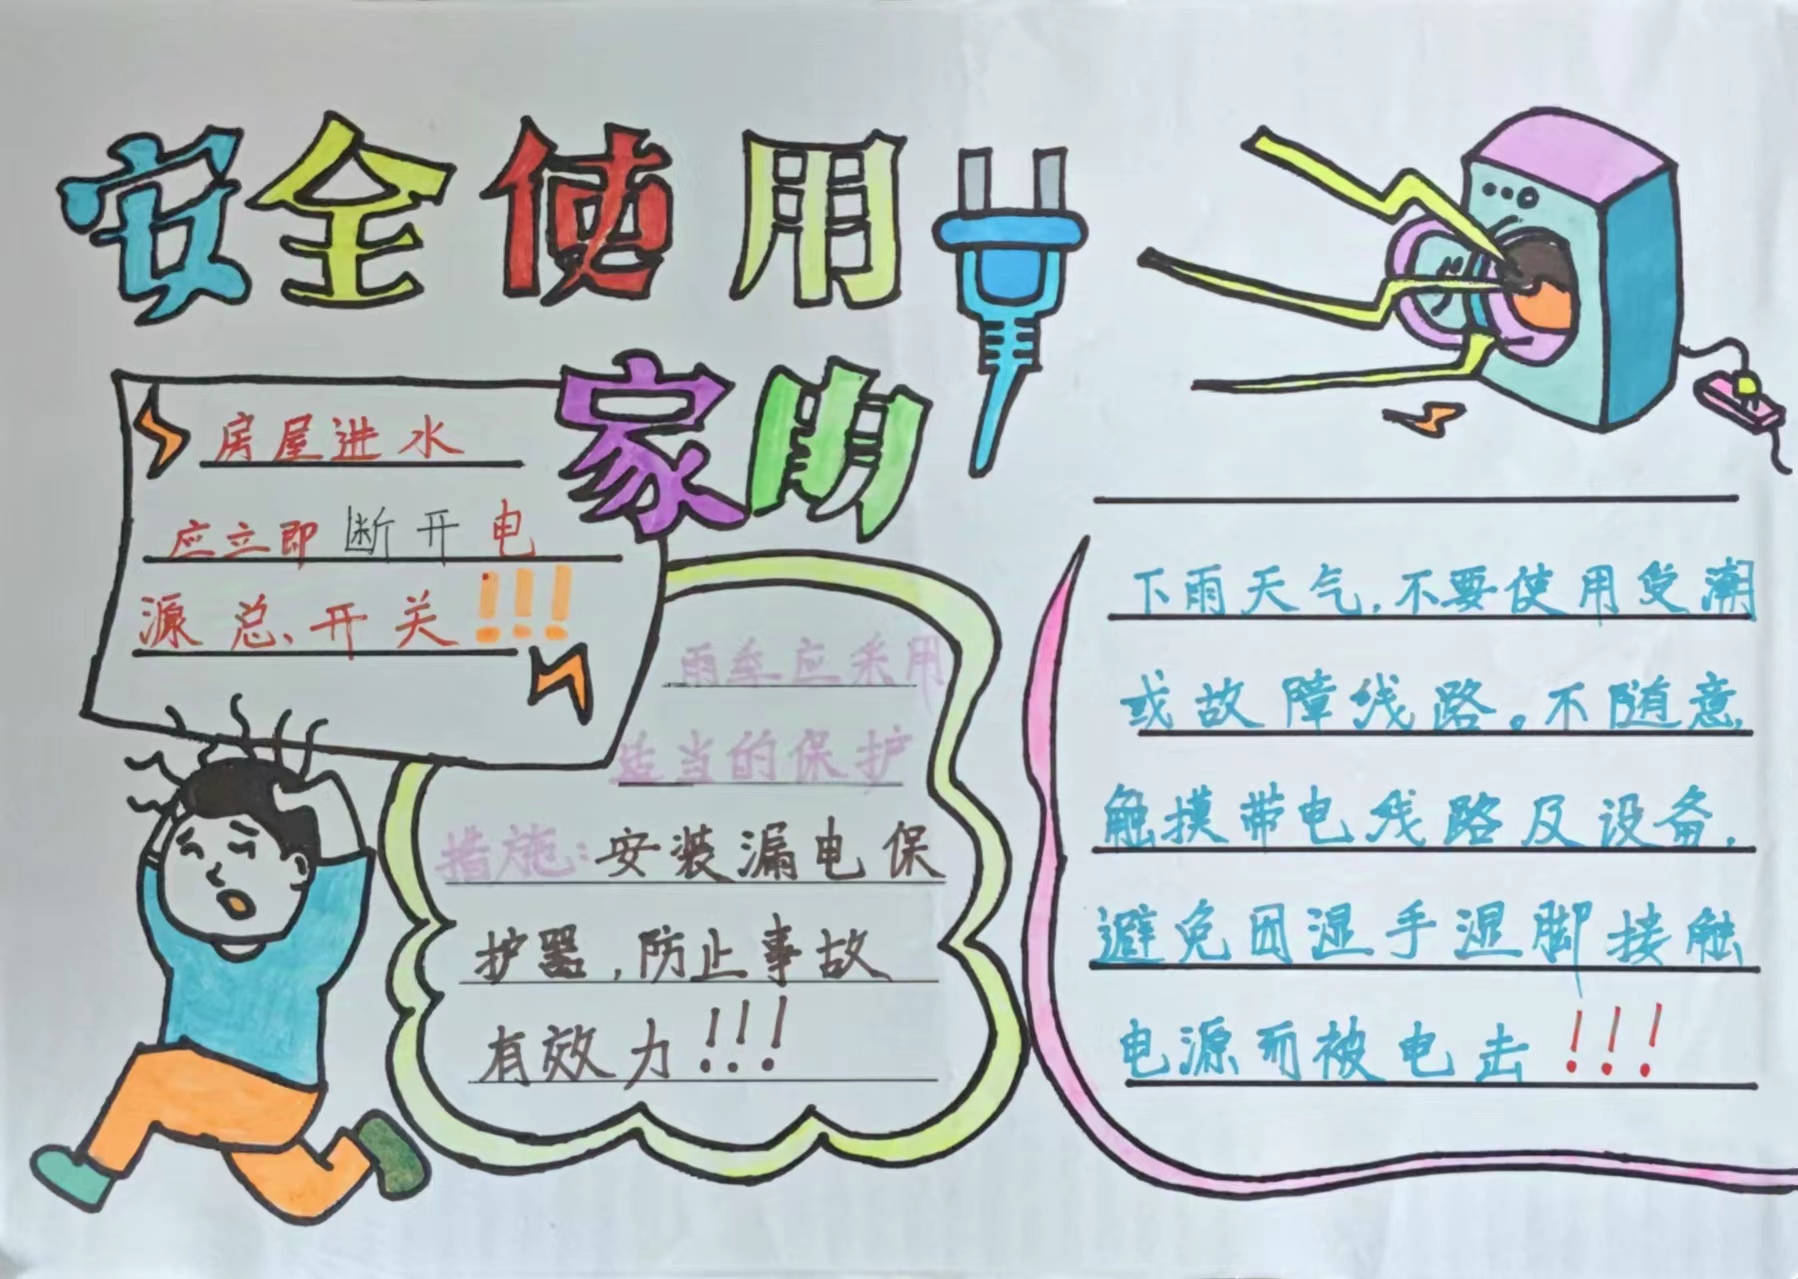 安全使用
家用
房屋进水
应立即断开电
源总开关!!!
雨季应采用
适当的保护
措施:安装漏电保
护器,防止事故
有效力!!!
下雨天气,不要使用受潮
或故障线路。不随意
触摸带电线路及设备,
避免因湿手湿脚接触
电源而被电击!!!